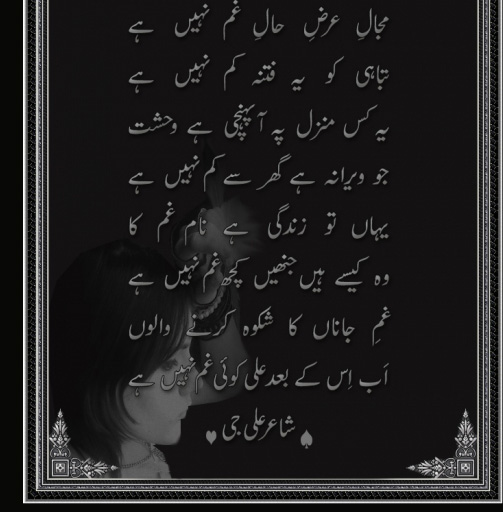 مجالِ عرضِ حالِ غم نہیں ہے
تباہی کو یہ فتنہ کم نہیں ہے
یہ کس منزل پہ آ پہنچی ہے وحشت
جو ویرانہ ہے گھر سے کم نہیں ہے
یہاں تو زندگی ہے نام غم کا
وہ کیسے ہیں جنھیں کچھ غم نہیں ہے
غمِ جاناں کا شکوہ کرنے والوں
اَب اِس کے بعد علی کوئی غم نہیں ہے
♠ شاعر علی جی ♥